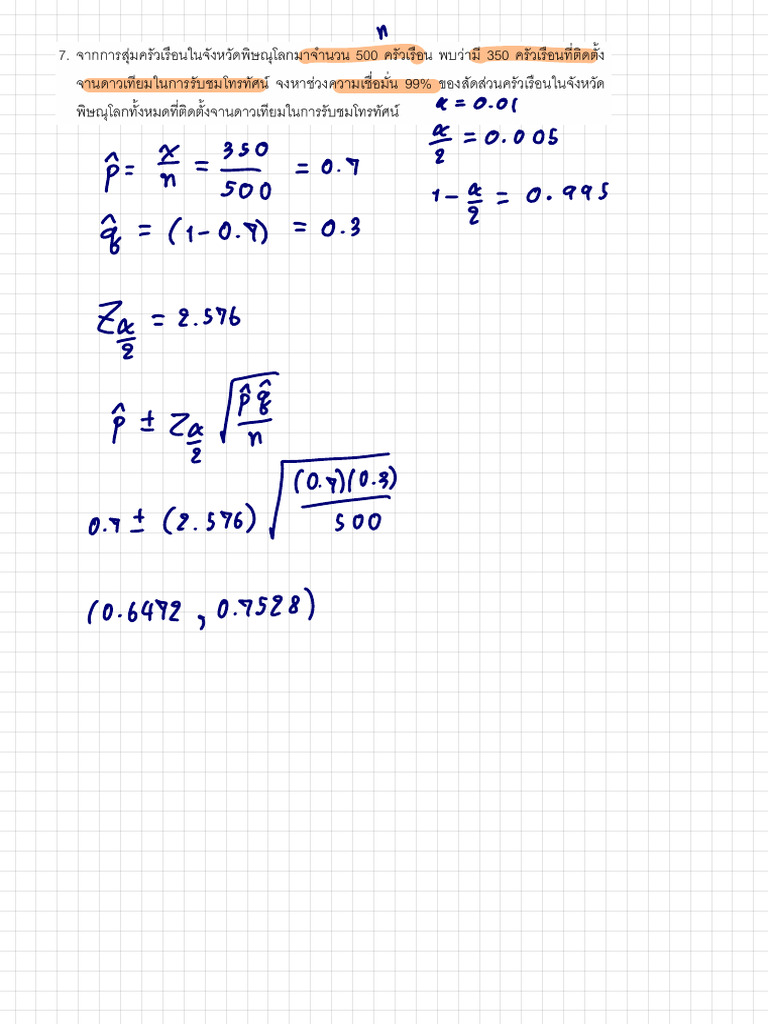 n
7. จากการสุ่มครัวเรือนในจังหวัดพิษณุโลกมาจำนวน 500 ครัวเรือน พบว่ามี 350 ครัวเรือนที่ติดตั้ง
จานดาวเทียมในการรับชมโทรทัศน์ จงหาช่วงความเชื่อมั่น 99% ของสัดส่วนครัวเรือนในจังหวัด
พิษณุโลกทั้งหมดที่ติดตั้งจานดาวเทียมในการรับชมโทรทัศน์
α = 0.01
α/2 = 0.005
1 - α/2 = 0.995
p̂ = x/n = 350/500 = 0.7
q̂ = (1 - 0.7) = 0.3
Z α/2 = 2.576
p̂ ± Z α/2 √(p̂ q̂/n)
0.7 ± (2.576) √((0.7)(0.3)/500)
(0.6472 , 0.7528)